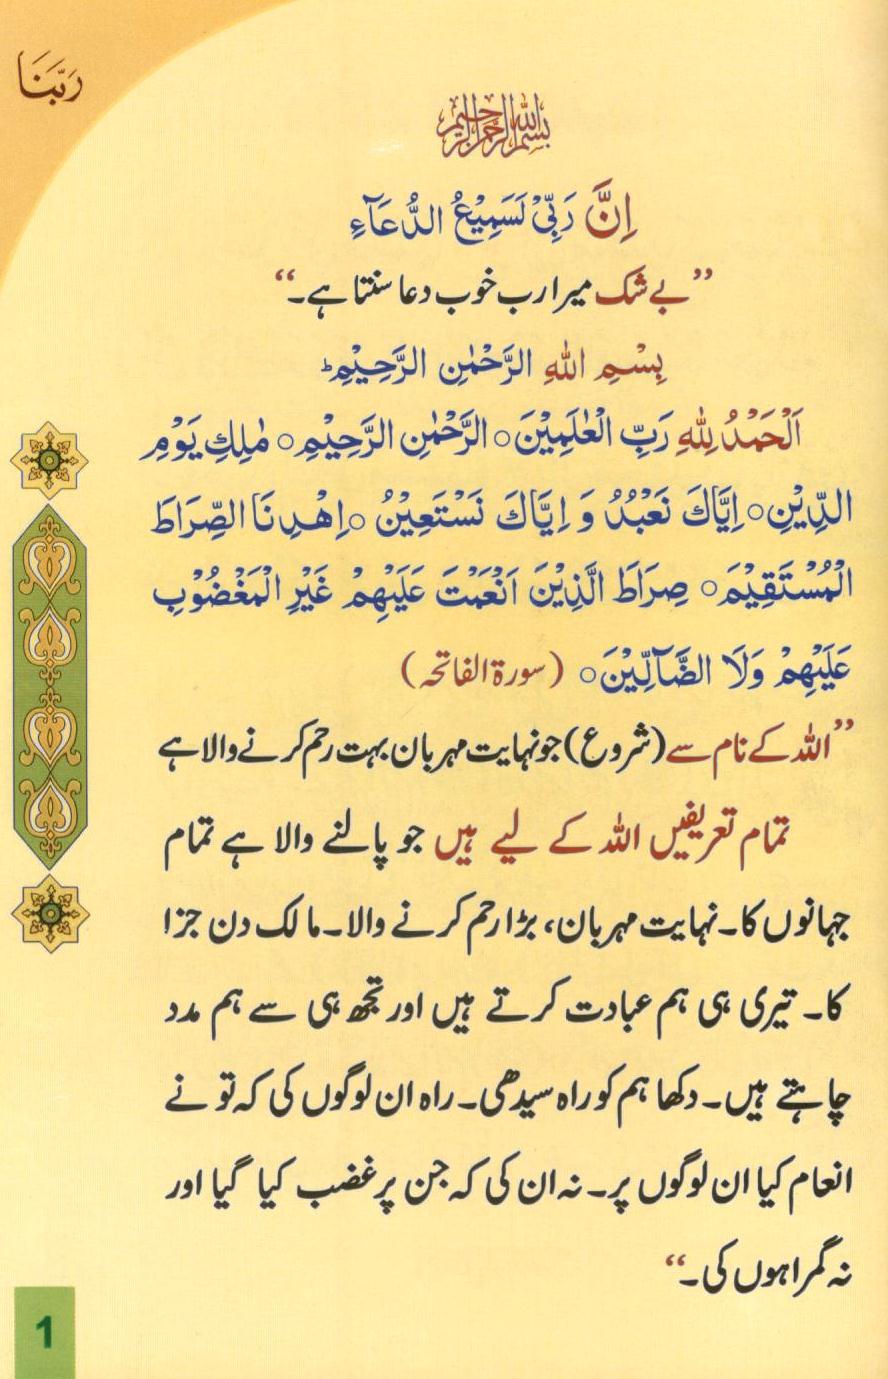 رَبَّنَا
بسم الله الرحمن الرحيم
اِنَّ رَبِّیْ لَسَمِیْعُ الدُّعَآءِ
”بے شک میرا رب خوب دعا سنتا ہے۔“
بِسْمِ اللهِ الرَّحْمٰنِ الرَّحِیْمِ ؕ
اَلْحَمْدُ لِلّٰهِ رَبِّ الْعٰلَمِیْنَ ○ الرَّحْمٰنِ الرَّحِیْمِ ○ مٰلِكِ یَوْمِ
الدِّیْنِ ○ اِیَّاكَ نَعْبُدُ وَ اِیَّاكَ نَسْتَعِیْنُ ○ اِهْدِنَا الصِّرَاطَ
الْمُسْتَقِیْمَ ○ صِرَاطَ الَّذِیْنَ اَنْعَمْتَ عَلَیْهِمْ غَیْرِ الْمَغْضُوْبِ
عَلَیْهِمْ وَلَا الضَّآلِّیْنَ ○ (سورة الفاتحہ)
”اللہ کے نام سے (شروع) جو نہایت مہربان بہت رحم کرنے والا ہے
تمام تعریفیں اللہ کے لیے ہیں جو پالنے والا ہے تمام
جہانوں کا۔ نہایت مہربان، بڑا رحم کرنے والا۔ مالک دن جزا
کا۔ تیری ہی ہم عبادت کرتے ہیں اور تجھ ہی سے ہم مدد
چاہتے ہیں۔ دکھا ہم کو راہ سیدھی۔ راہ ان لوگوں کی کہ تو نے
انعام کیا ان لوگوں پر۔ نہ ان کی کہ جن پر غضب کیا گیا اور
نہ گمراہوں کی۔“
1